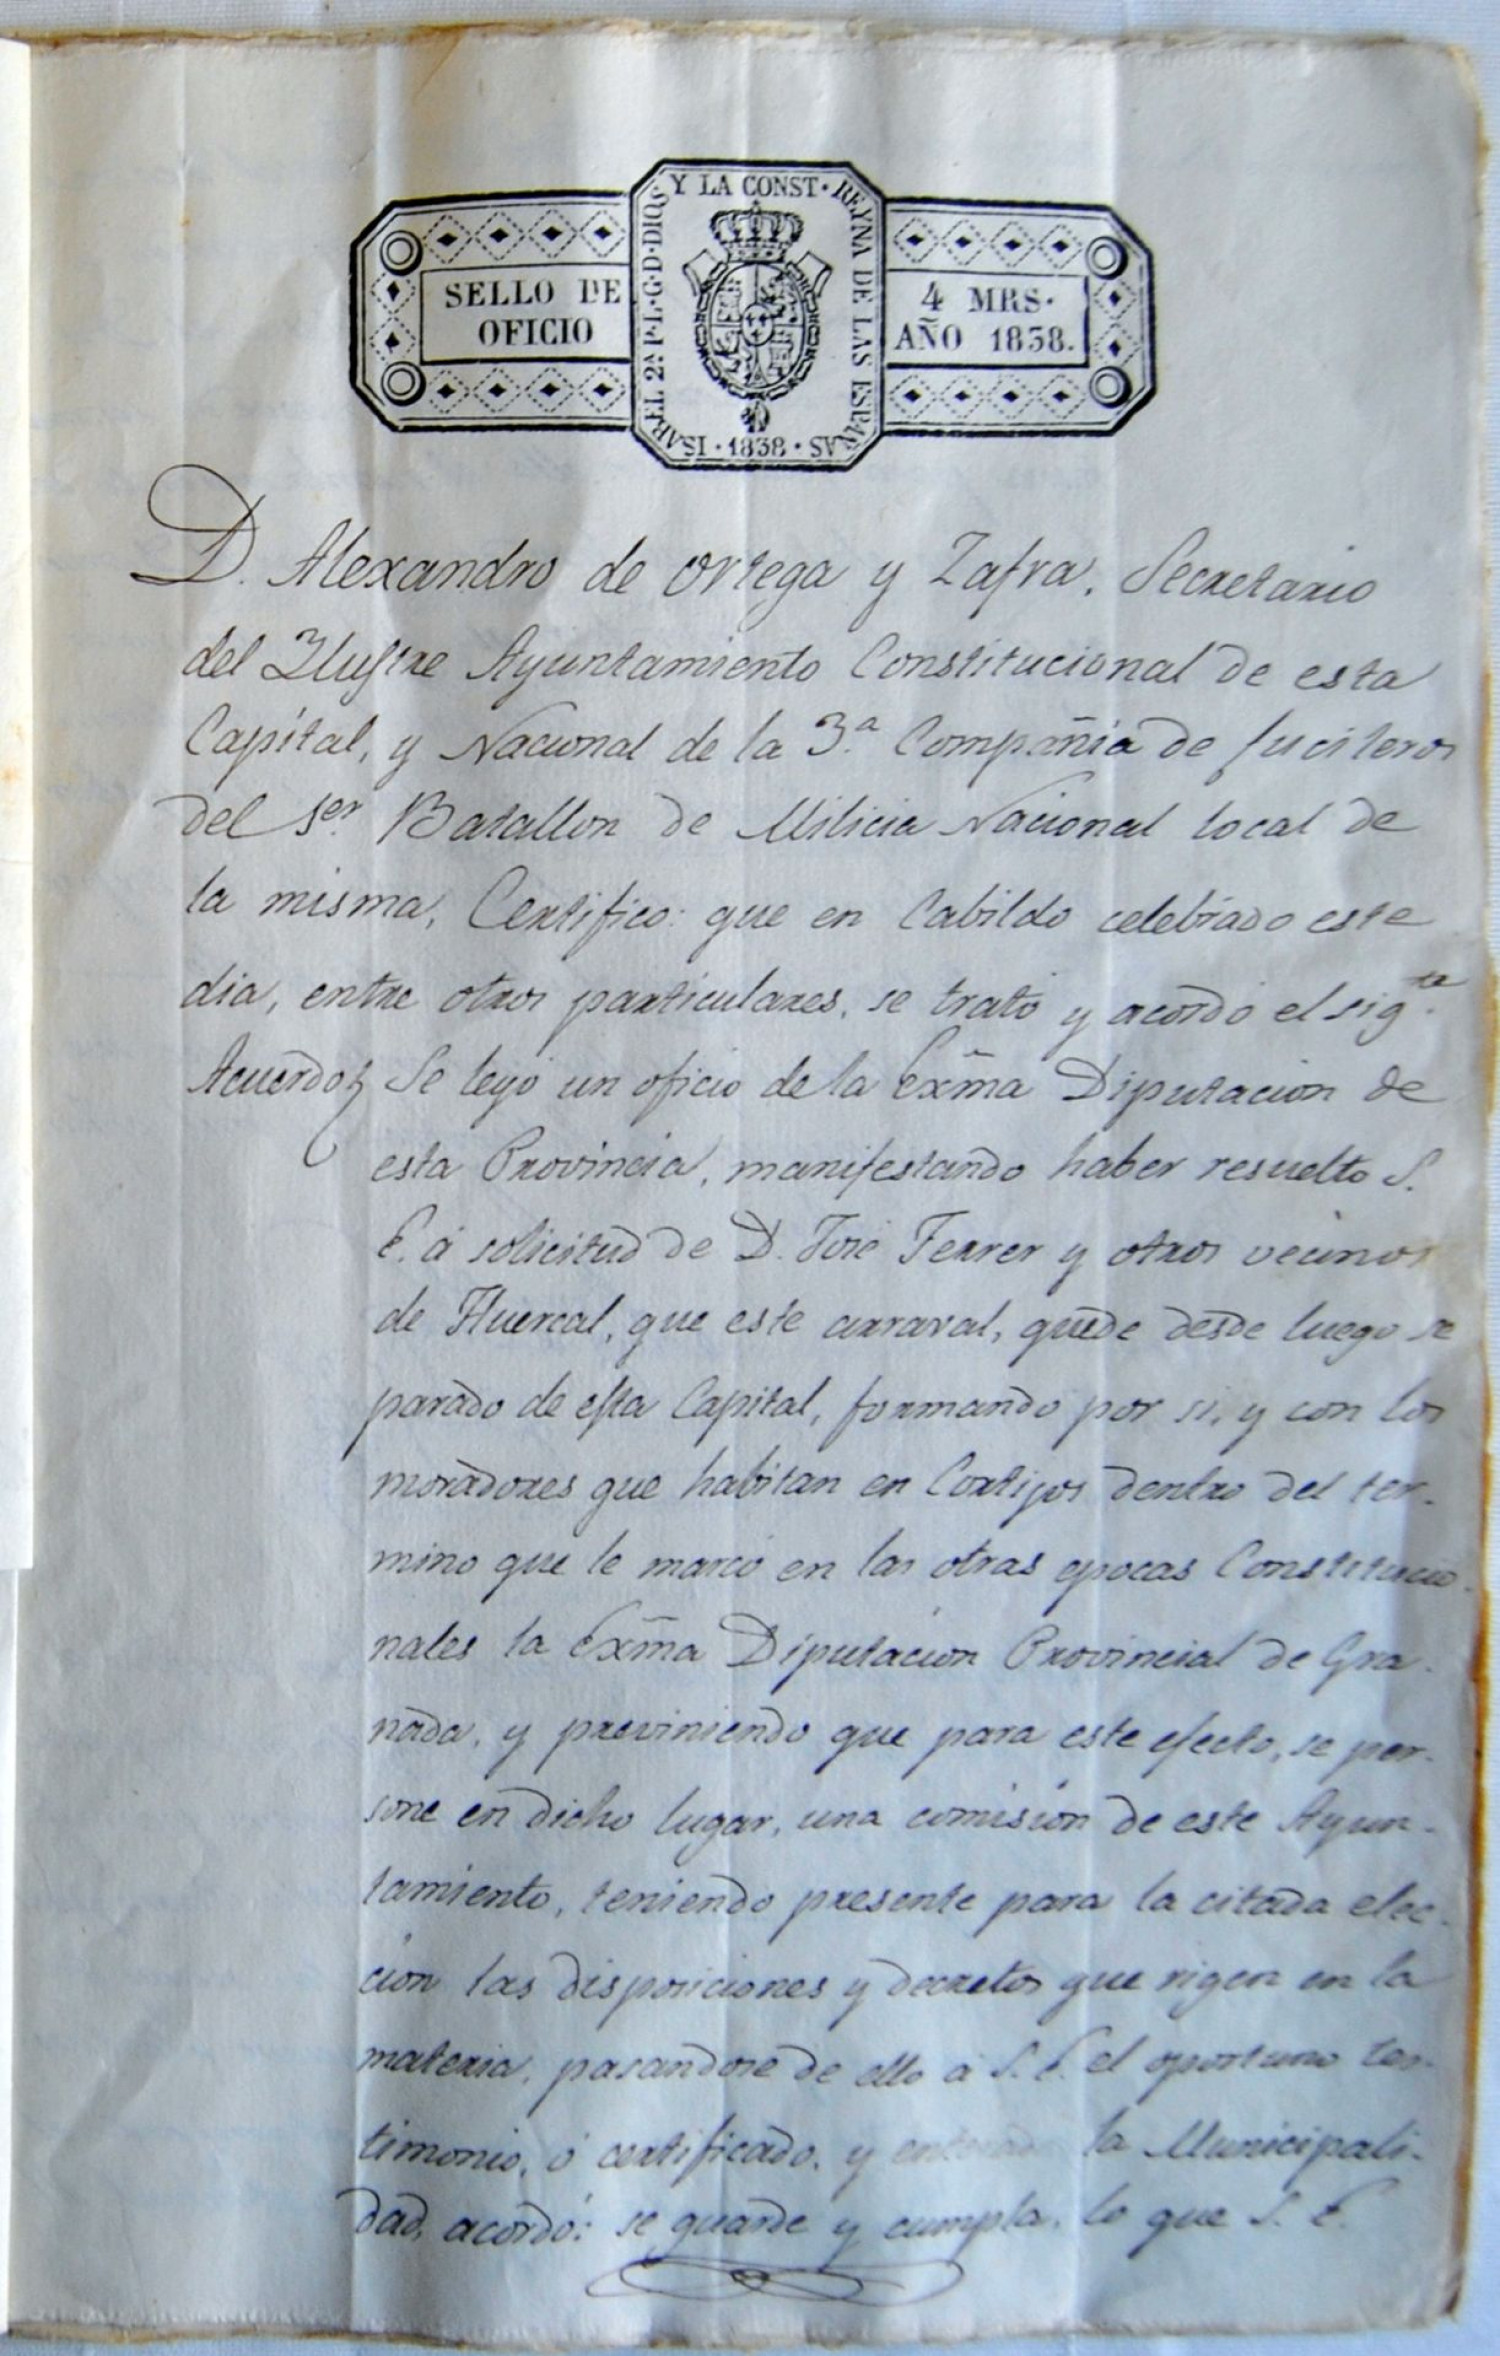 ISABEL 2ª P. L. G. D. DIOS Y LA CONST. REYNA DE LAS ESPAÑAS · 1838 ·
SELLO DE
OFICIO
4 MRS.
AÑO 1838.
D. Alexandro de Ortega y Zafra, Secretario
del Ylustre Ayuntamiento Constitucional de esta
Capital, y Nacional de la 3.ª Compañia de fucileros
del 1er. Batallon de Milicia Nacional local de
la misma, Certifico: que en Cabildo celebrado este
dia, entre otros particulares, se trató y acordó el sigte.
Acuerdo} Se leyó un oficio de la Exma Diputacion de
esta Provincia, manifestando haber resuelto S.
E. á solicitud de D. José Ferrer y otros vecinos
de Huercal, que este arraval, quede desde luego se
parado de esta Capital, formando por si, y con los
moradores que habitan en Cortijos dentro del ter-
mino que le marcó en las otras epocas Constitucio-
nales la Exma Diputacion Provincial de Gra-
nada, y previniendo que para este efecto, se per-
sone en dicho lugar, una comision de este Ayun-
tamiento, teniendo presente para la citada elec-
cion las disposiciones y decretos que rigen en la
materia, pasandose de ello á S. E. el oportuno tes-
timonio, ó certificado, y enterada la Municipali-
dad, acordó: se guarde y cumpla, lo que S. E.